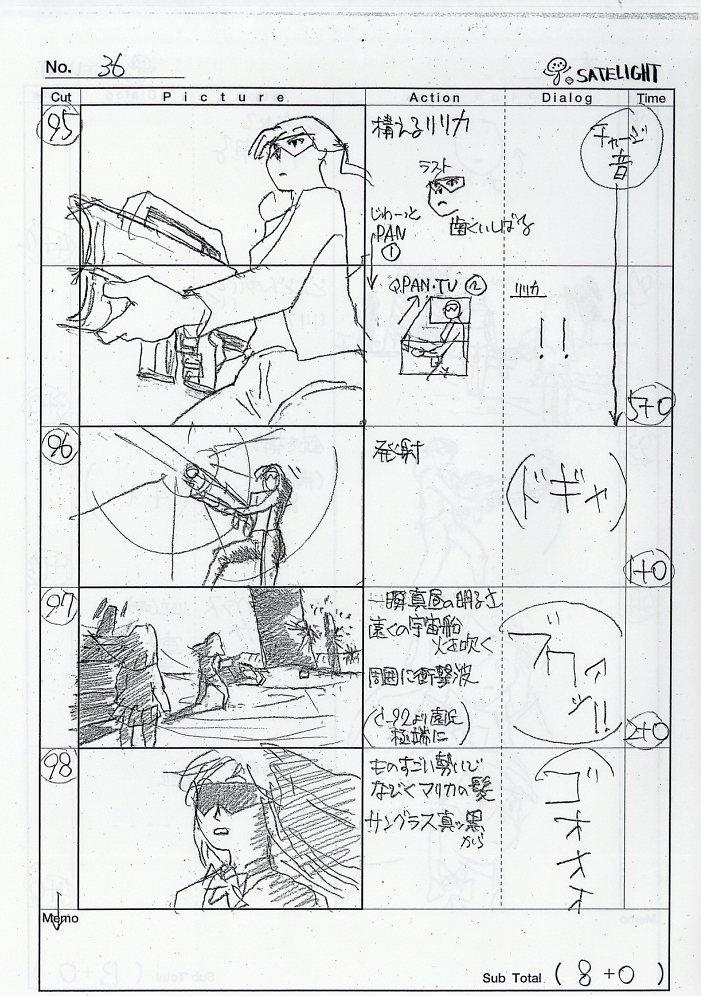 No. 36
SATELIGHT
Cut Picture Action Dialog Time
95
構えるリリカ
チャージ
音
ラスト
歯くいしばる
じわーっと
PAN
①
Q.PAN.TU ②
リリカ
!!
5+0
96
発射
(ドギャ)
1+0
97
一瞬真昼の明るさ
遠くの宇宙船
火を吹く
周囲に衝撃波
(C-92より遠近
極端に)
ブワッ!!
2+0
98
ものすごい勢いで
なびくマリカの髪
サングラス真ッ黒
から
ゴオオオオ
Memo
Sub Total (8+0)